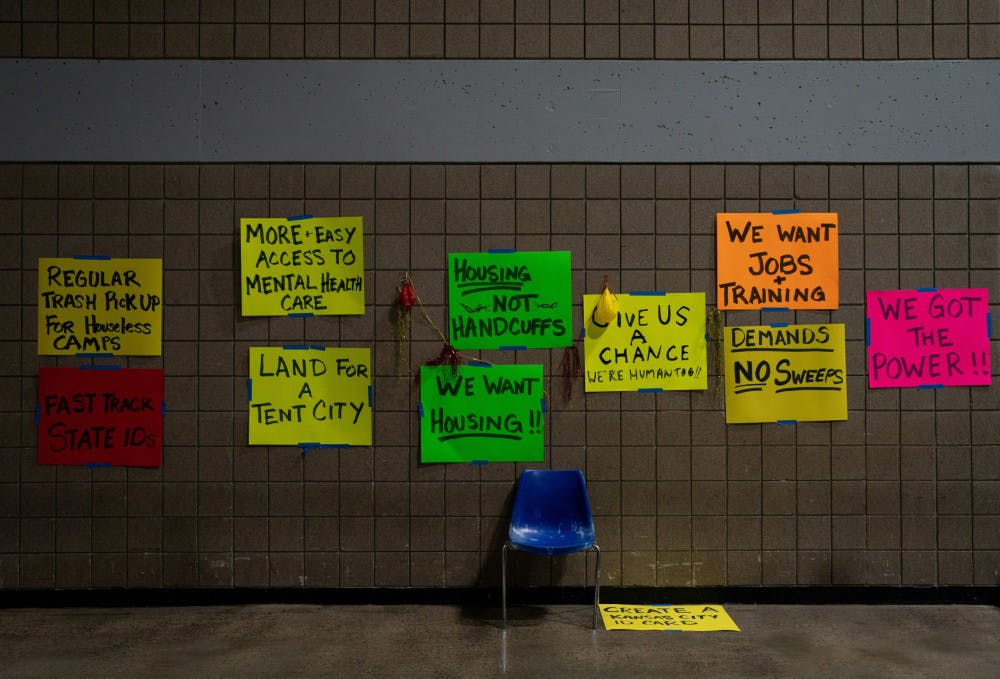 REGULAR
TRASH PICK UP
FOR Houseless
CAMPS
FAST TRACK
STATE IDs
MORE + EASY
ACCESS TO
MENTAL HEALTH
CARE
LAND FOR
A
TENT CITY
HOUSING
NOT
HANDCUFFS
WE WANT
HOUSING !!
GIVE US
A
CHANCE
WE'RE HUMAN TOO!!
WE WANT
JOBS
+
TRAINING
DEMANDS
NO SWEEPS
WE GOT
THE
POWER !!
CREATE A
KANSAS CITY
ID CARD